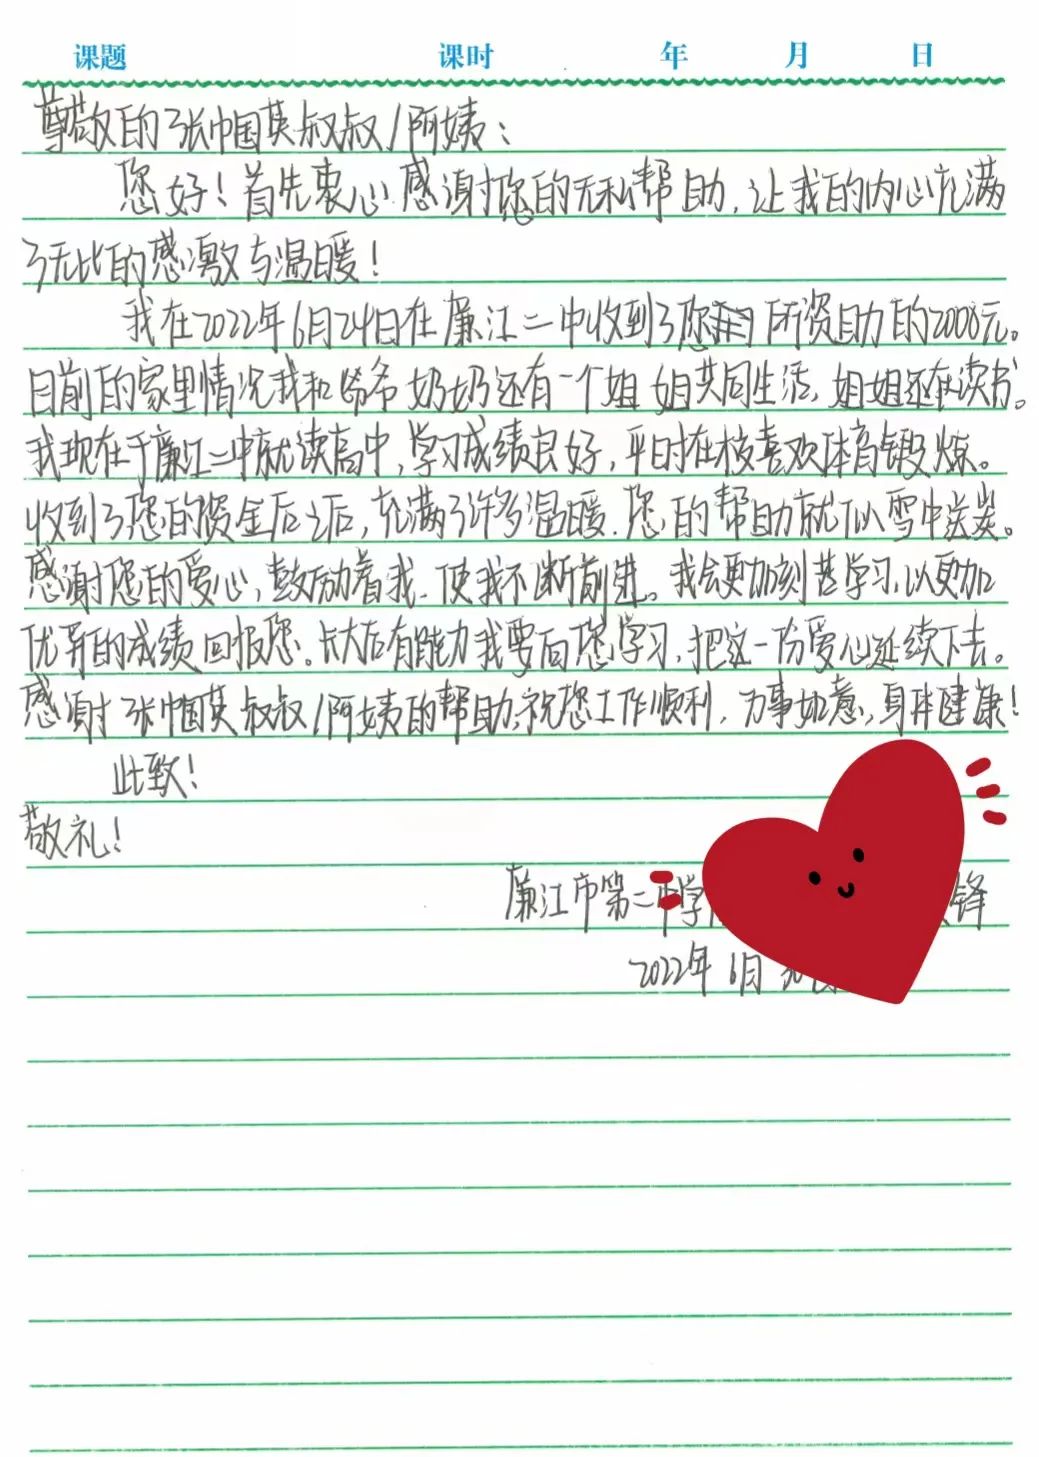 课题 课时 年 月 日
尊敬的张帼英叔叔/阿姨：
您好！首先衷心感谢您的无私帮助，让我的内心充满
了无比的感激与温暖！
我在2022年6月24日在廉江二中收到了您所资助的2000元。
目前的家里情况我和爷爷奶奶还有一个姐姐共同生活，姐姐还在读书。
我现在于廉江二中就读高中，学习成绩良好，平时在校喜欢体育锻炼。
收到了您的资金后之后，充满了许多温暖.您的帮助就似雪中送炭。
感谢您的爱心，鼓励着我.使我不断前进。我会更加刻苦学习，以更加
优异的成绩回报您。长大后有能力我要向您学习，把这一份爱心延续下去。
感谢张帼英叔叔/阿姨的帮助，祝您工作顺利，万事如意，身体健康！
此致！
敬礼！
廉江市第二中学 锋
2022年6月30日